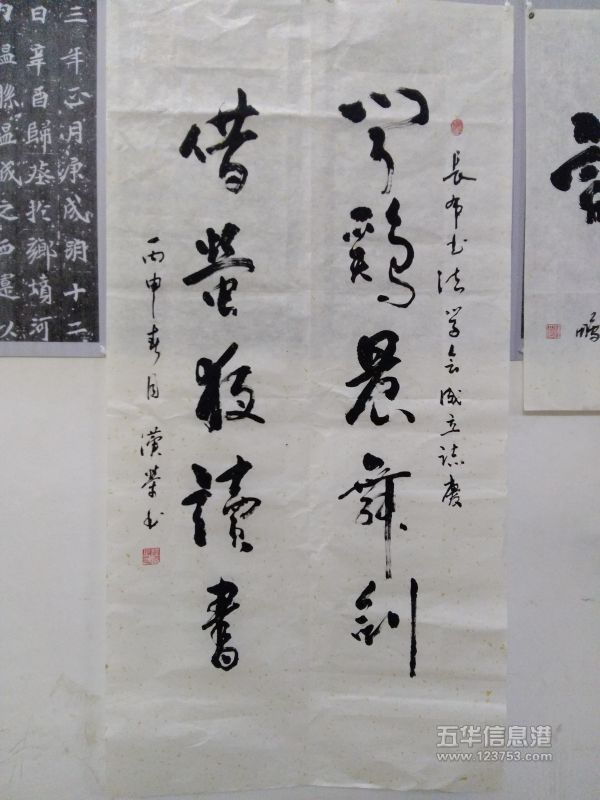 長布书法学会成立誌慶
闻鷄晨舞剑
借萤夜讀書
丙申春月 漢荣书
三年正月庚戌朔十二
日辛酉歸塟於鄉墳河
内温縣温城之西還以
鵬
五华信息港
www.123753.com